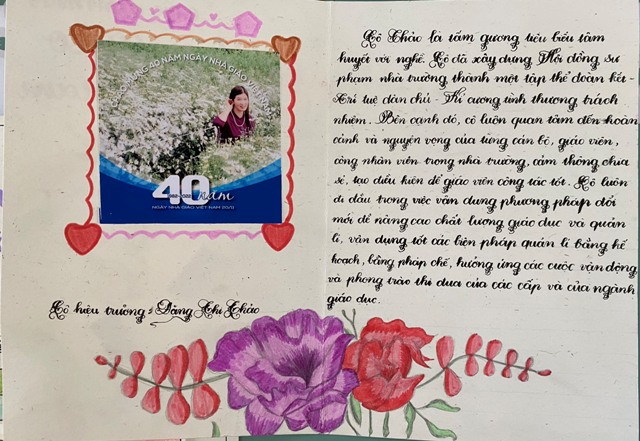 CHÀO MỪNG 40 NĂM NGÀY NHÀ GIÁO VIỆT NAM
40 năm
1982-2022
NGÀY NHÀ GIÁO VIỆT NAM 20/11
Cô hiệu trưởng: Đặng Thị Thảo
Cô Thảo là tấm gương tiêu biểu tâm
huyết với nghề. Cô đã xây dựng Hội đồng sư
phạm nhà trường thành một tập thể đoàn kết -
Trí tuệ dân chủ - Kỉ cương tình thương trách
nhiệm. Bên cạnh đó, cô luôn quan tâm đến hoàn
cảnh và nguyện vọng của từng cán bộ, giáo viên,
công nhân viên trong nhà trường, cảm thông chia
sẻ, tạo điều kiện để giáo viên công tác tốt. Cô luôn
đi đầu trong việc vận dụng phương pháp đổi
mới để nâng cao chất lượng giáo dục và quản
lí, vận dụng tốt các biện pháp quản lí bằng kế
hoạch, bằng pháp chế, hưởng ứng các cuộc vận động
và phong trào thi đua của các cấp và của ngành
giáo dục.